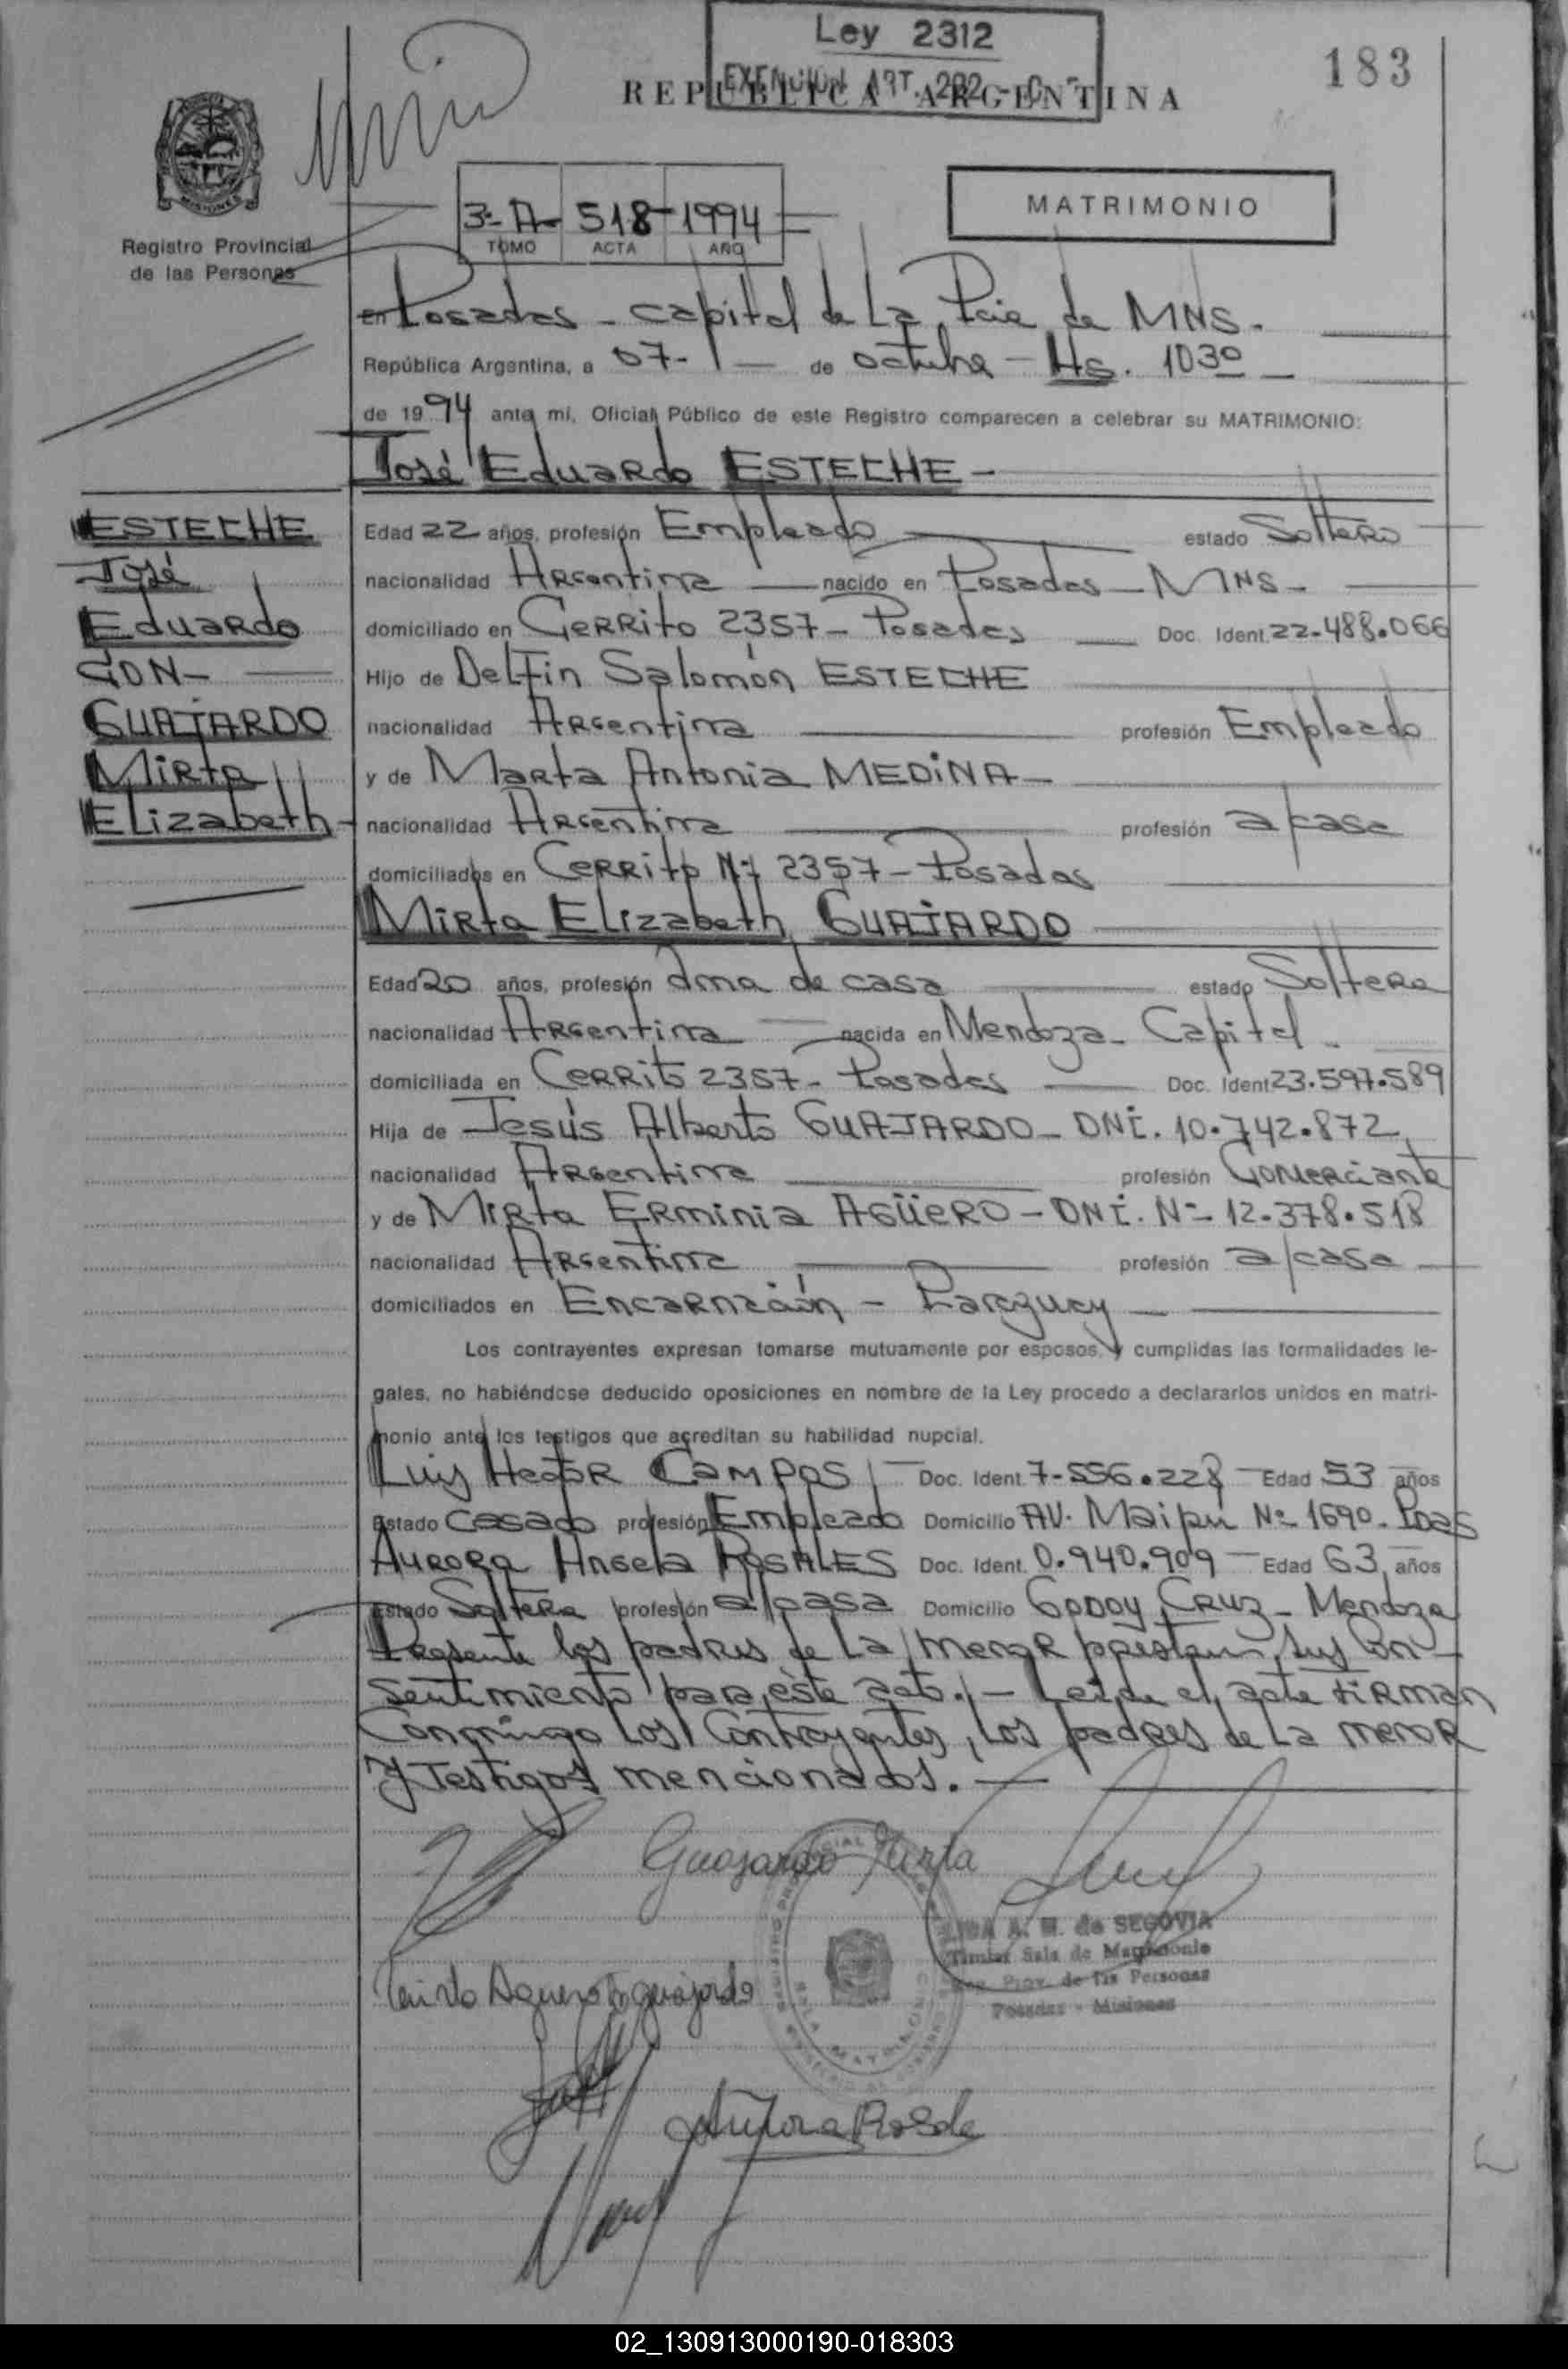 Ley 2312
183
REPUBLICA ARGENTINA
EXENCION ART. 292
MISIONES
Registro Provincial
de las Personas
3º-A- 518-1994
TOMO ACTA AÑO
MATRIMONIO
En Posadas - capital de La Pcia de MNS.
República Argentina, a 07- de octubre - Hs. 1030
de 1994 ante mi, Oficial Público de este Registro comparecen a celebrar su MATRIMONIO:
José Eduardo ESTECHE -
ESTECHE
José
Eduardo
CON-
GUAJARDO
Mirta
Elizabeth-
Edad 22 años, profesión Empleado estado Soltero
nacionalidad Argentina nacido en Posadas - MNS-
domiciliado en Cerrito 2357- Posadas Doc. Ident. 22-488.066
Hijo de Delfin Salomón ESTECHE
nacionalidad Argentina profesión Empleado
y de Marta Antonia MEDINA-
nacionalidad Argentina profesión a/casa
domiciliados en Cerrito Nº 2357- Posadas
Mirta Elizabeth GUAJARDO
Edad 20 años, profesión Ama de casa estado Soltera
nacionalidad Argentina nacida en Mendoza- Capital-
domiciliada en Cerrito 2357- Posadas Doc. Ident 23.597.589
Hija de Jesús Alberto GUAJARDO- DNI. 10.742.872
nacionalidad Argentina profesión Comerciante
y de Mirta Erminia AGÜERO- DNI. Nº- 12.378.518
nacionalidad Argentina profesión a/casa
domiciliados en Encarnación - Paraguay
Los contrayentes expresan tomarse mutuamente por esposos, y cumplidas las formalidades le-
gales, no habiéndose deducido oposiciones en nombre de la Ley procedo a declararlos unidos en matri-
monio ante los testigos que acreditan su habilidad nupcial.
Luis Hector CAMPOS Doc. Ident. 7-556.228 Edad 53 años
Estado Casado profesión Empleado Domicilio AV. Maipú Nº 1690- Pdas
Aurora Angela ROSALES Doc. Ident. 0.940.909 Edad 63 años
Estado Soltera profesión a/casa Domicilio GODOY CRUZ- Mendoza
Presente los padres de La menor prestan sus Con-
sentimiento para éste acto.- Leida el acta firman
Conmigo Los Contrayentes, Los padres de La menor
Y Testigos mencionados.-
Guajardo Mirta
A. M. de SEGOVIA
Sala de Matrimonio
Prov. de las Personas
Posadas - Misiones
Mirta Aguero D guajardo
Aurora Rosale
02_130913000190-018303